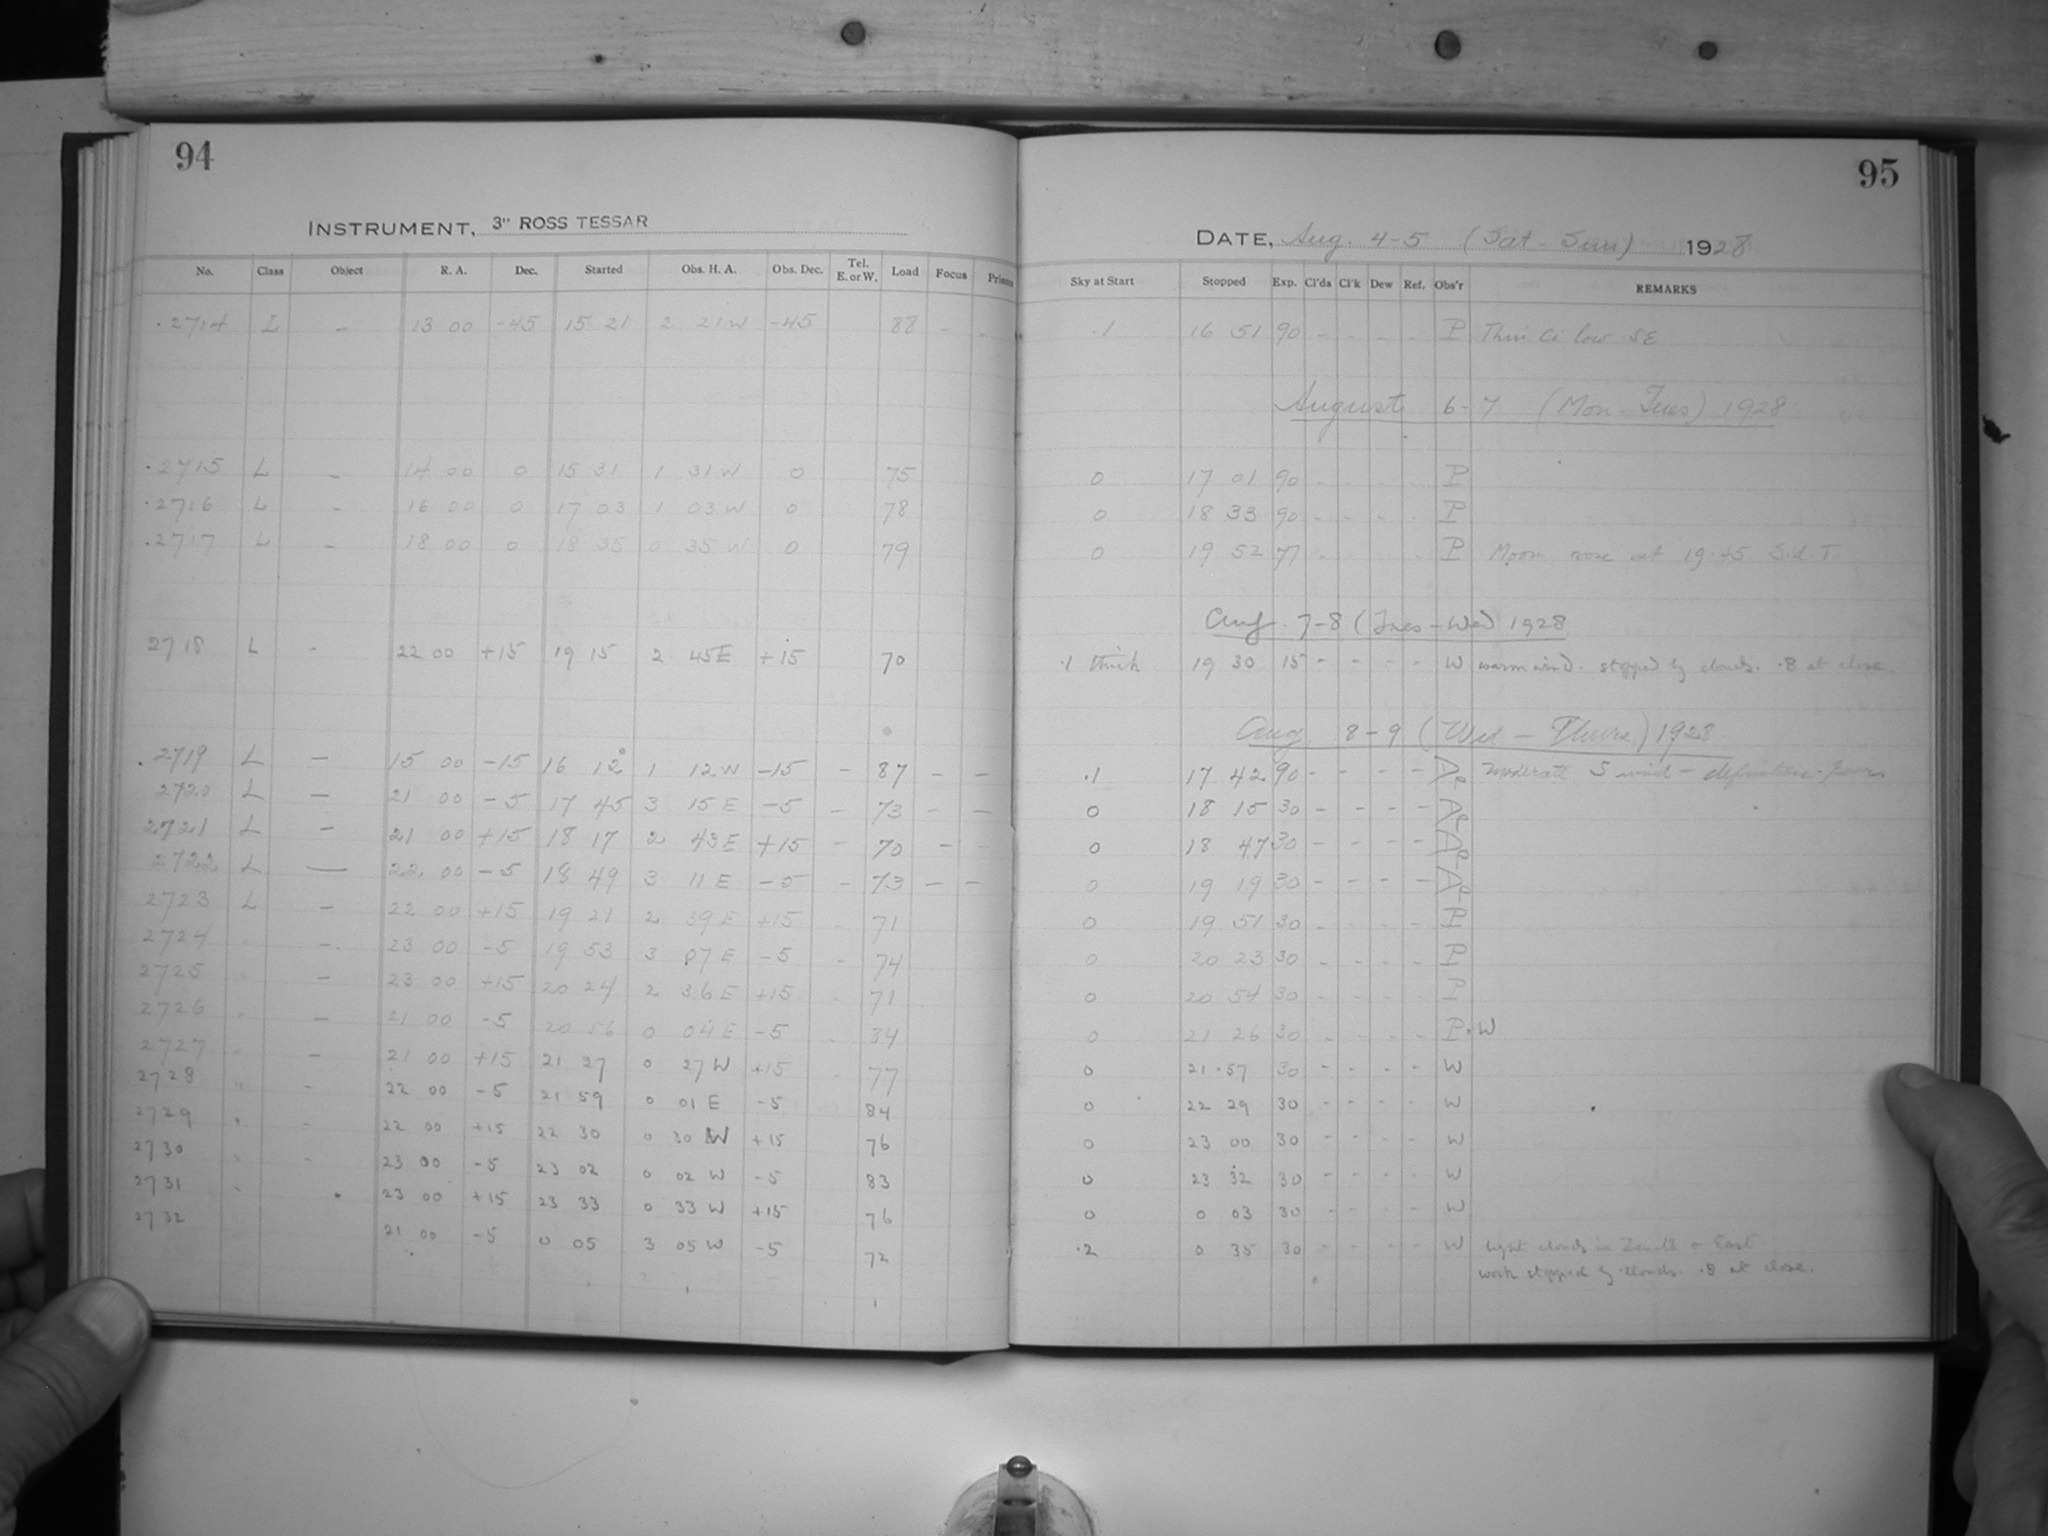 94
INSTRUMENT, 3" ROSS TESSAR
No. Class Object R. A. Dec. Started Obs. H. A. Obs. Dec. Tel. E. or W. Load Focus
.2714 L - 13 00 -45 15 21 2 21 W -45 88 - -
.2715 L - 14 00 0 15 31 1 31 W 0 75
.2716 L - 16 00 0 17 03 1 03 W 0 78
.2717 L - 18 00 0 18 35 0 35 W 0 79
2718 L - 22 00 +15 19 15 2 45 E +15 70
.2719 L - 15 00 -15 16 12 1 12 W -15 - 87 - -
2720 L - 21 00 -5 17 45 3 15 E -5 - 73 - -
2721 L - 21 00 +15 18 17 2 43 E +15 - 70 - -
2722 L - 22 00 -5 18 49 3 11 E -5 - 73 - -
2723 L - 22 00 +15 19 21 2 39 E +15 - 71
2724 " - 23 00 -5 19 53 3 07 E -5 - 74
2725 " - 23 00 +15 20 24 2 36 E +15 - 71
2726 " - 21 00 -5 20 56 0 04 E -5 - 84
2727 " - 21 00 +15 21 27 0 27 W +15 77
2728 " - 22 00 -5 21 59 0 01 E -5 84
2729 " - 22 00 +15 22 30 0 30 W +15 76
2730 " - 23 00 -5 23 02 0 02 W -5 83
2731 " - 23 00 +15 23 33 0 33 W +15 76
2732 21 00 -5 0 05 3 05 W -5 72
95
DATE, Aug. 4-5 (Sat - Sun) 1928
Sky at Start Stopped Exp. Cl'ds Cl'k Dew Ref. Obs'r REMARKS
.1 16 51 90 - - - - P Thin Ci low SE
August 6-7 (Mon-Tues) 1928
0 17 01 90 - - - - P
0 18 33 90 - - - - P
0 19 52 77 - P Moon rose at 19.45 Sid T.
Aug. 7-8 (Tues-Wed) 1928
.1 thick 19 30 15 - - - - W warm wind. stopped by clouds. .8 at close.
Aug. 8-9 (Wed - Thurs) 1928
.1 17 42 90 - - - - moderate S wind - definition poor
0 18 15 30 - - - -
0 18 47 30 - - - -
0 19 19 30 - - - -
0 19 51 30 - - - - P
0 20 23 30 - - - - P
0 20 54 30 - - - - P
0 21 26 30 - - - - P.W
0 21.57 30 - - - - W
0 22 29 30 - - - - W
0 23 00 30 - - - - W
0 23 32 30 - - - - W
0 0 03 30 - - - - W
.2 0 35 30 - - - - W light clouds in Zenith & East
work stopped by clouds. .8 at close.